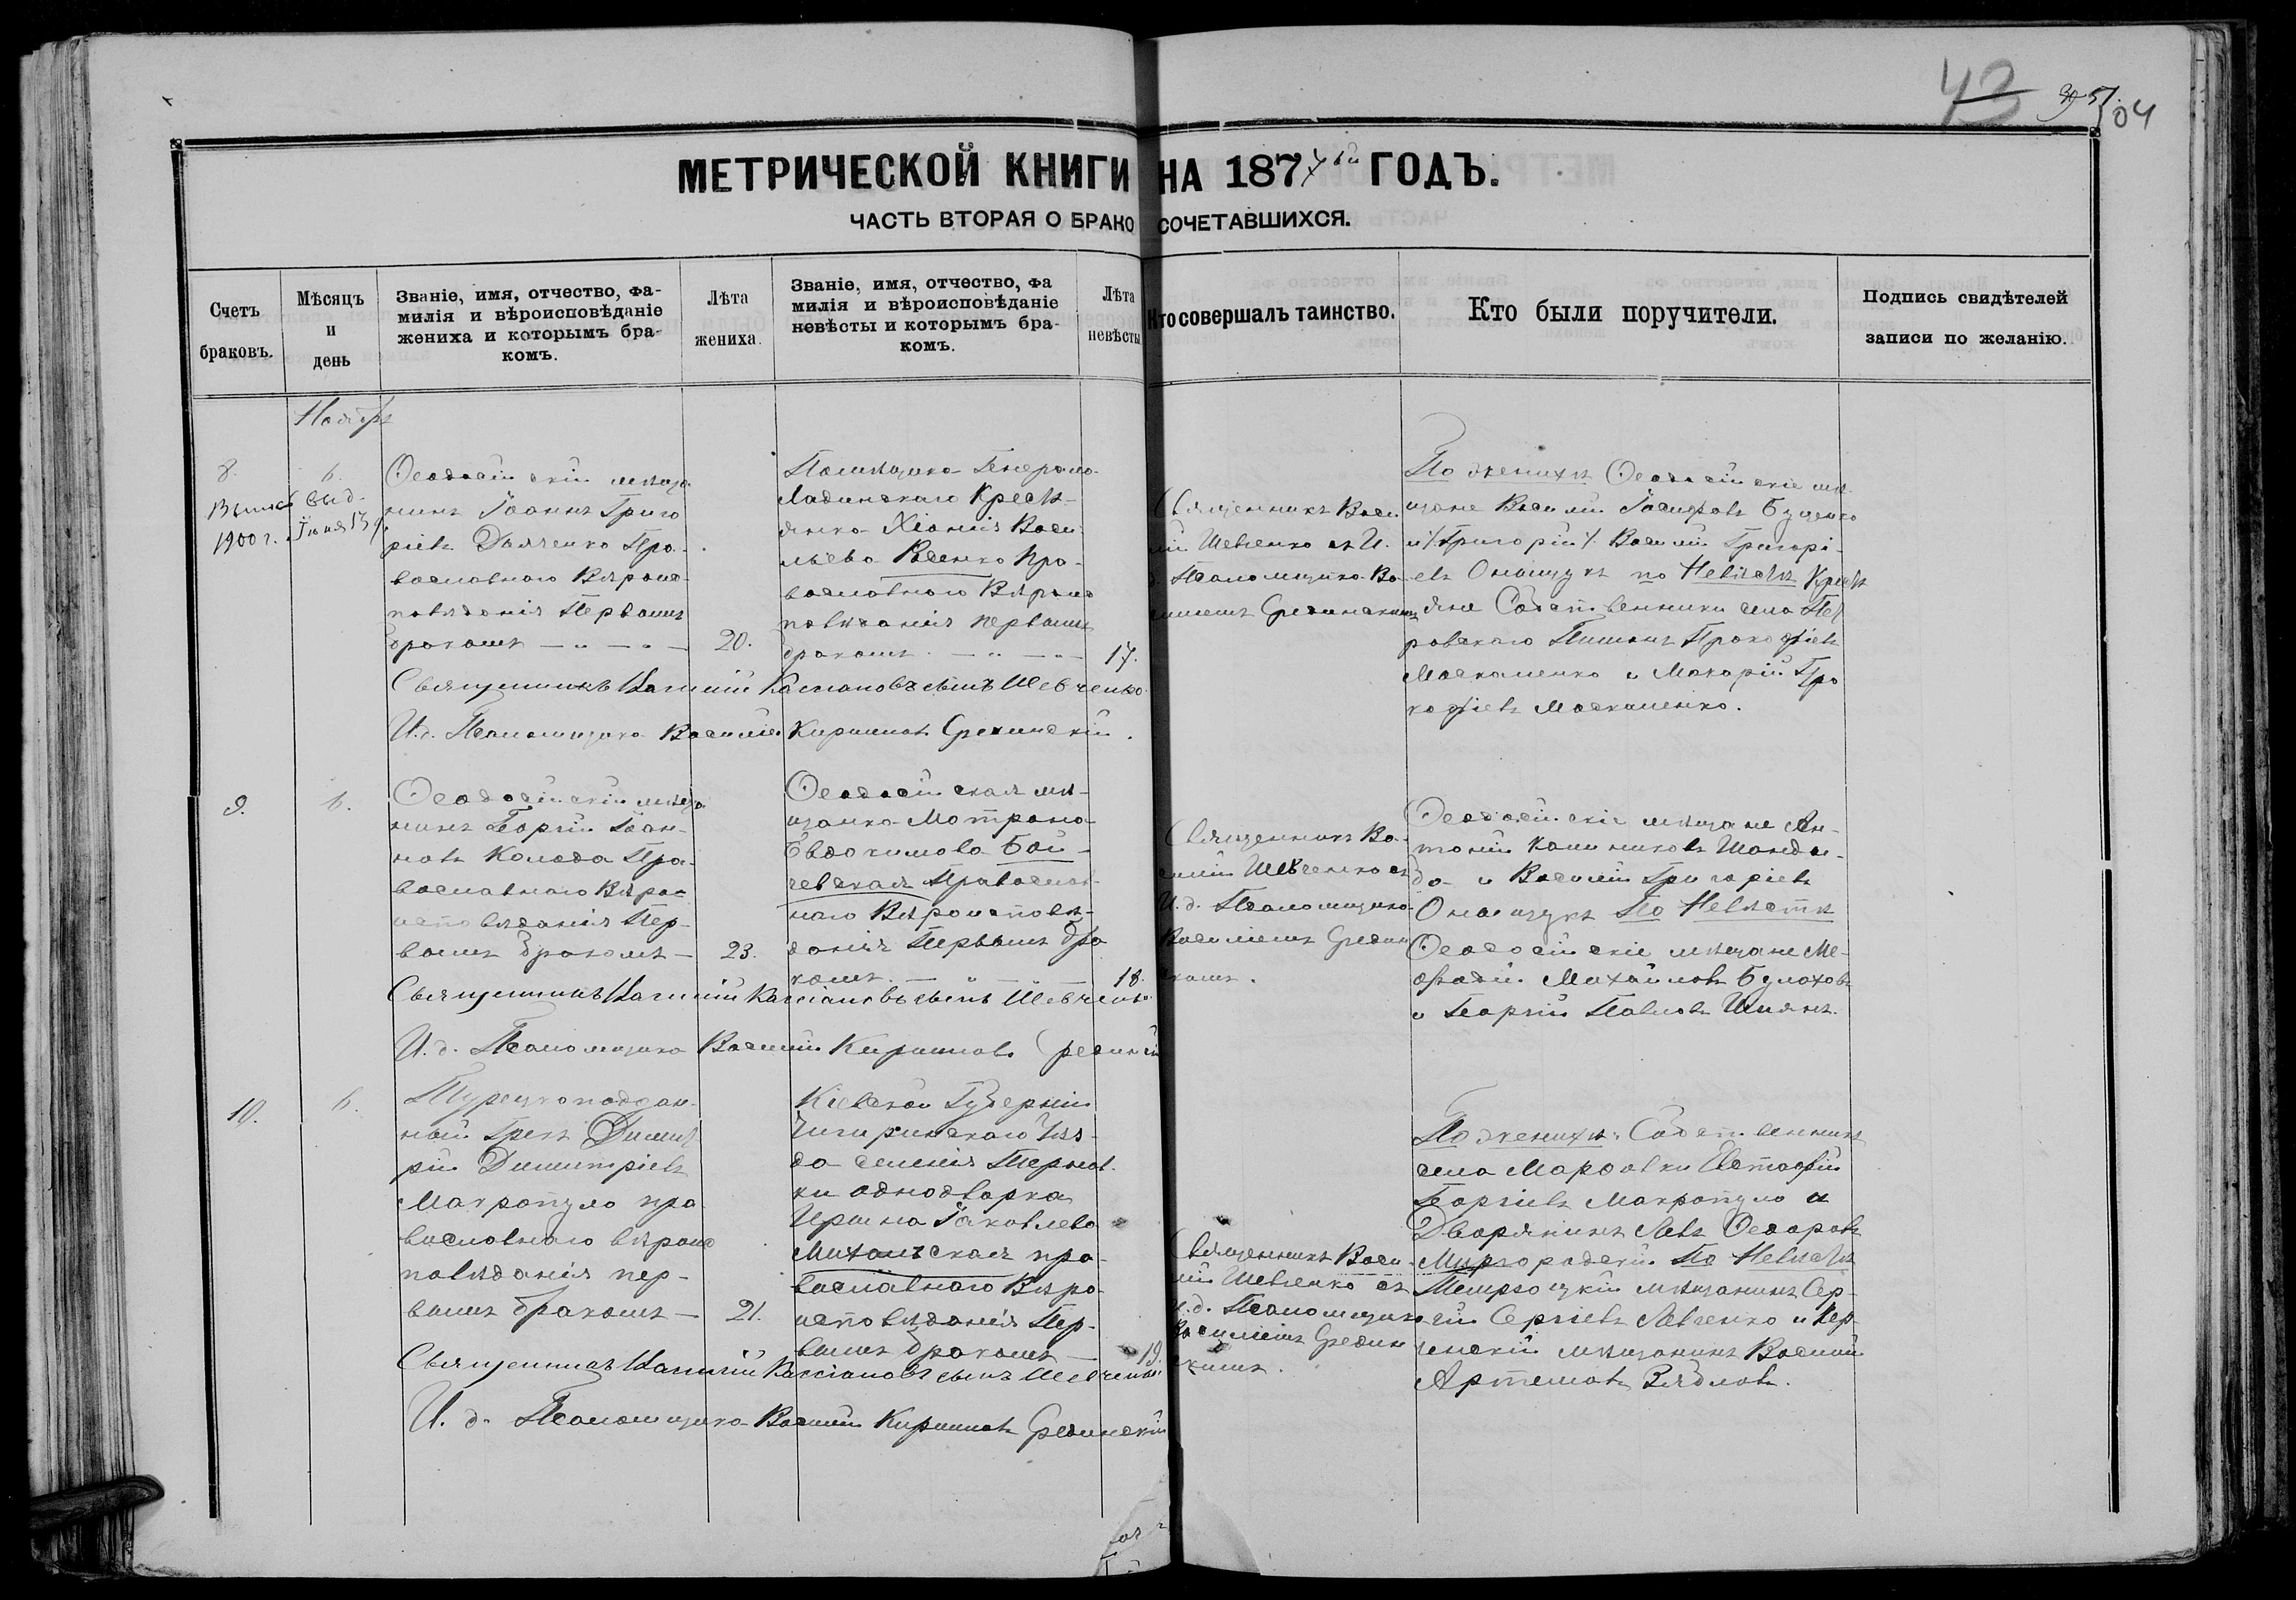 43 51. 104
МЕТРИЧЕСКОЙ КНИГИ НА 187 ГОДЪ.
ЧАСТЬ ВТОРАЯ О БРАКОСОЧЕТАВШИХСЯ.
Счетъ браковъ.
Мѣсяцъ и день
Званіе, имя, отчество, фа-
милія и вѣроисповѣданіе
жениха и которымъ бра-
комъ.
Лѣта жениха.
Званіе, имя, отчество, фа
милія и вѣроисповѣданіе
невѣсты и которымъ бра-
комъ.
Лѣта невѣсты
Кто совершалъ таинство.
Кто были поручители.
Подпись свидѣтелей
записи по желанію.
Ноябрь
8.
выд.
1900 г. Іюня 13
6.
Ѳеодосійскій мѣща
нинъ Іоаннъ Григо
ріевъ Дьяченко Пра-
вославнаго Вѣроис-
повѣданія Первымъ
бракомъ
20.
Помѣщика Генерала
Ладинскаго Кресть-
янка Хіонія Васи
льева Пра-
вославнаго Вѣроис
повѣданія первымъ
бракомъ
17.
Священникъ Васи
лій Шевченко съ И.
д. Псаломщика Ва
силіемъ Срединскимъ
По женихѣ Ѳеодосійскіе мѣ-
щане Василій Іосифовъ Буценко
и /Григорій/ Василій Григорі-
евъ Онащукъ по Невѣстѣ Кресть
яне Собственники села Пет
ровскаго Пименъ Прокофіевъ
Москаленко и Макарій Про
кофіевъ Москаленко.
Священникъ Василій Кассіановъ сынъ Шевченко.
И. д. Псаломщика Василій Кирилловъ Срединскій.
9.
6.
Ѳеодосійскій мѣща
нинъ Георгій Іоан-
новъ Колода Пра-
вославнаго Вѣро
исповѣданія Пер-
вымъ бракомъ
23.
Ѳеодосійская мѣ-
щанка Матрона
Евдокимова Бой-
чевская Православ-
наго Вѣроисповѣ-
данія Первымъ бра
комъ
18.
Священникъ Ва-
силій Шевченко съ
И. д. Псаломщика
Василіемъ Средин
скимъ.
Ѳеодосійскіе мѣщане Ан-
тоній Калиниковъ Шанда-
ба и Василій Григоріевъ
Онащукъ По Невѣстѣ
Ѳеодосійскіе мѣщане Ме-
фодій Михайловъ Булаховъ
и Георгій Павловъ
Священникъ Василій Кассіановъ сынъ Шевченко
И. д. Псаломщика Василій Кирилловъ Срединскій
10.
6.
Турецкоподдан-
ный Грекъ Димит
рій Димитріевъ
Макропуло пра
вославнаго вѣроис
повѣданія пер-
вымъ бракомъ
21.
Кіевской Губерніи
Чигиринскаго Уѣз-
да селенія Тернов-
ки однодворка
Ирина Іаковлева
Михальская пра-
вославнаго Вѣро-
исповѣданія Пер-
вымъ бракомъ
19.
Священникъ Васи
лій Шевченко съ
И. д. Псаломщика
Василіемъ Средин
скимъ.
По женихѣ: Собственникъ
села Марфовки Евстафій
Георгіевъ Макропуло и
Дворянинъ Левъ Ѳеодоровъ
Миргородскій По Невѣстѣ
мѣщанинъ Сер-
гій Сергіевъ Левченко и Кер
ченскій мѣщанинъ Василій
Артемовъ Зябловъ.
Священникъ Василій Кассіановъ сынъ Шевченко
И. д. Псаломщика Василій Кирилловъ Срединскій